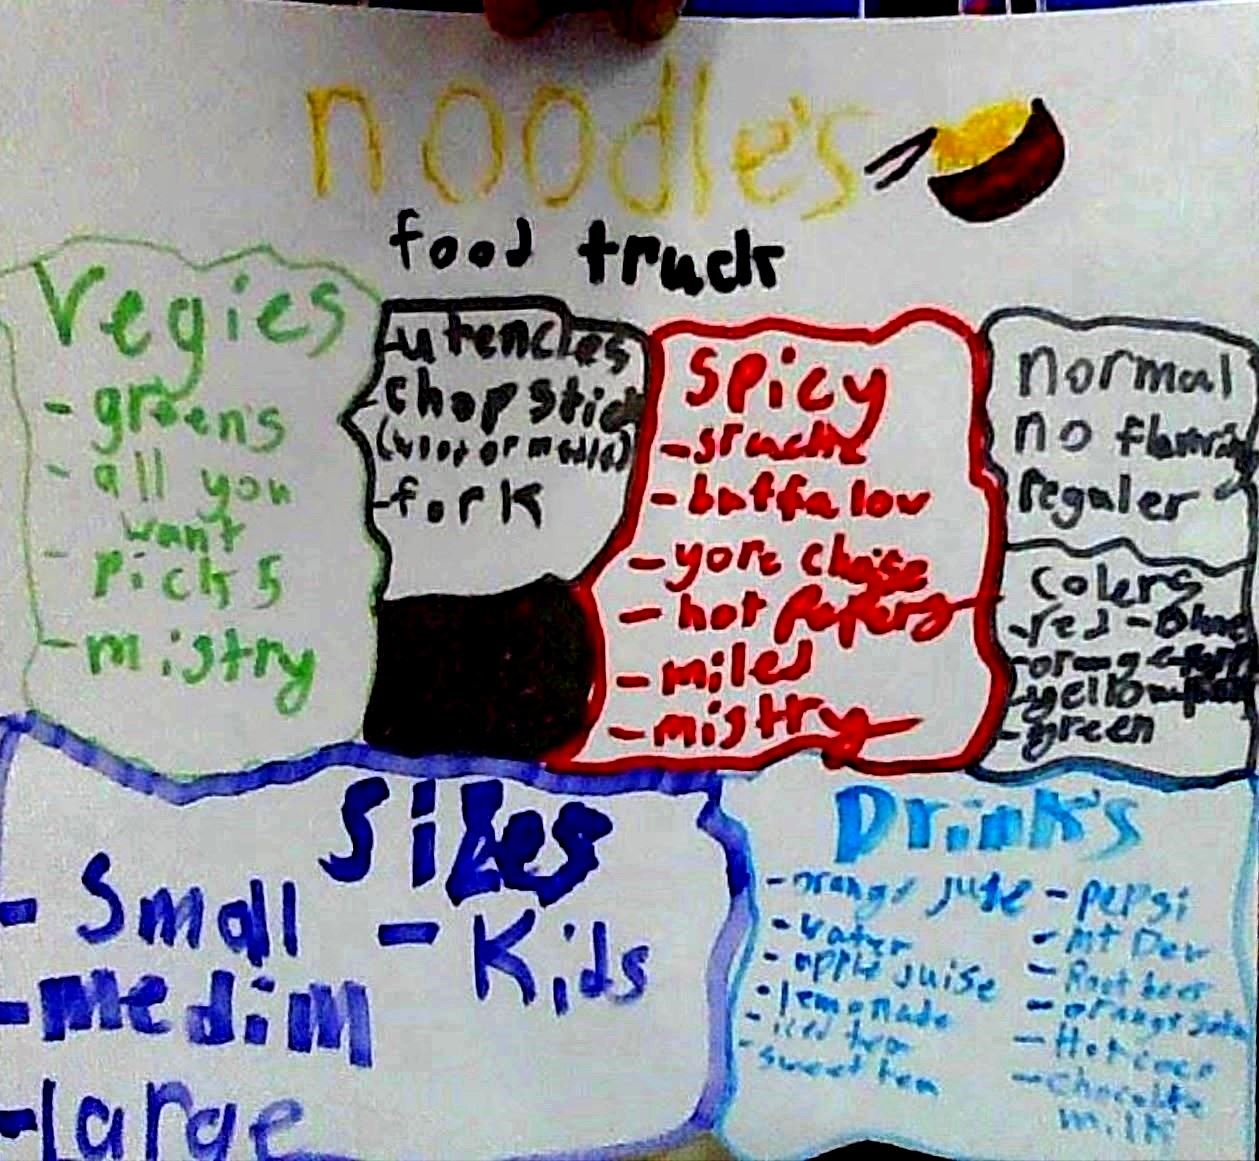 noodle's
food truck
Vegies
- green's
- all you
want
- pick 5
- mistry
- utencles
- chopstick
(woot or medle)
- fork
Spicy
- buffalow
- yore choise
- hot pepers
- miled
- mistry
normal
no
reguler
colers
- red - Blue
- orange
- yellow
- green
Sizes
- Small
- medim
- large
- Kids
Drink's
- orange juise
- water
- apple juise
- lemonade
- iced tea
- sweet tea
- pepsi
- mt Dew
- Root beer
- orange soda
- Hot coco
- chocolte
milk